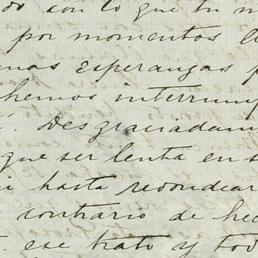 do con lo que tu m
por momentos
esperanzas
hemos interrump
Desgraciadam
que ser lenta en s
hasta redondear
contrario de hec
ese trato y tod